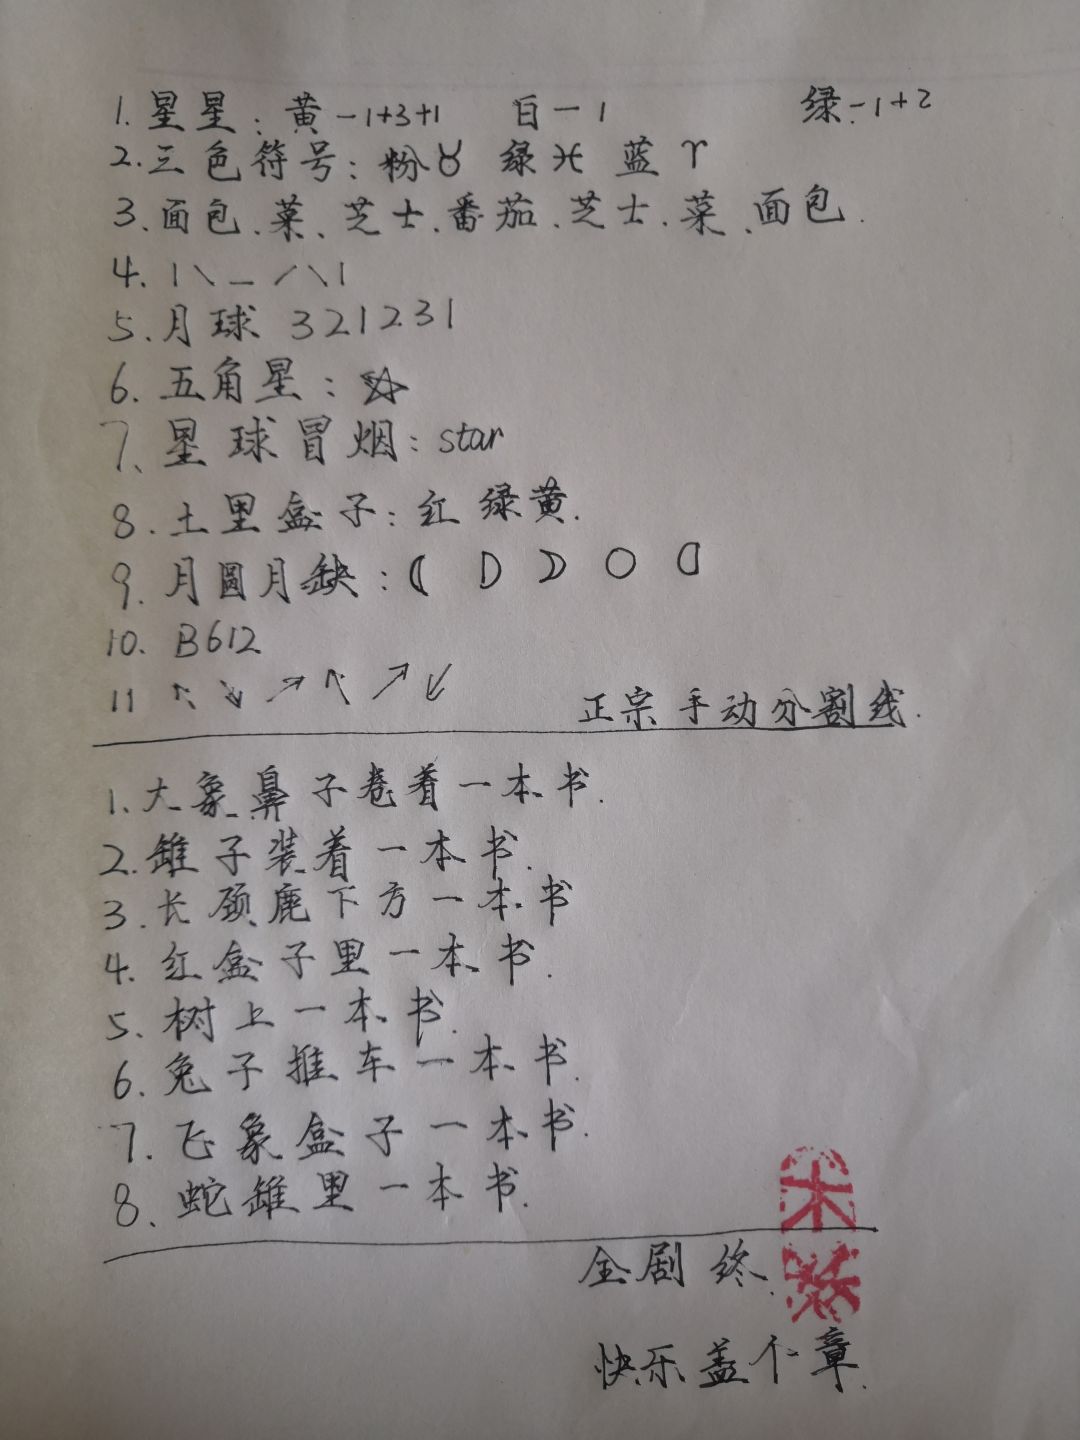 1. 星星：黄-1+3+1 白-1 绿-1+2
2. 三色符号：粉♉ 绿♓ 蓝♈
3、面包、菜、芝士、番茄、芝士、菜、面包.
4. | \ _ / \ |
5. 月球 321231
6. 五角星：☆
7、星球冒烟：star
8. 土里盒子：红绿黄.
9. 月圆月缺：☾ D ☽ ○ ᗡ
10. B612
11 ↖ ↘ ↗ ↖ ↗ ↙
正宗手动分割线.
1. 大象鼻子卷着一本书.
2. 罐子装着一本书.
3. 长颈鹿下方一本书
4. 红盒子里一本书.
5. 树上一本书.
6. 兔子推车一本书.
7. 飞象盒子一本书.
8、蛇罐里一本书.
全剧终.
快乐盖个章.